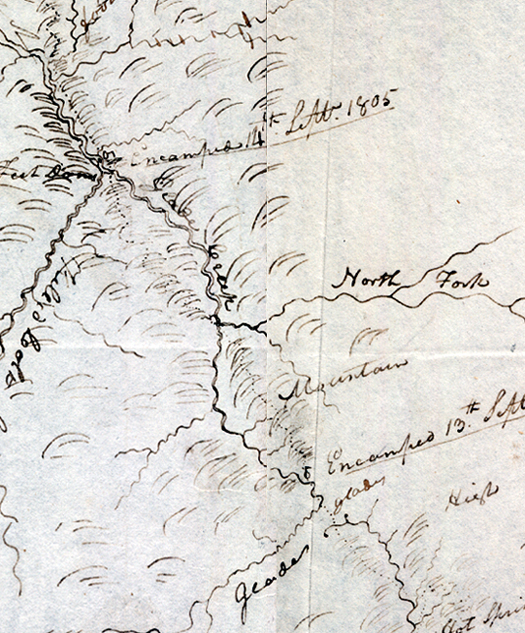 Encamped 14th Septr. 1805
Creek
North Fork
Mountain
Encamped 13th Sept
glades
High
glades
Hot Spri